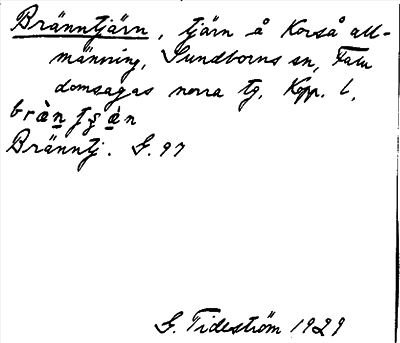 Bränntjärn, tjärn å Korså all-
männing, Sundborns sn, Falu
domsagas norra tg, Kopp. l.
brànt̬ʂà̱n
Bränntj. G. 97
G. Tideström 1929